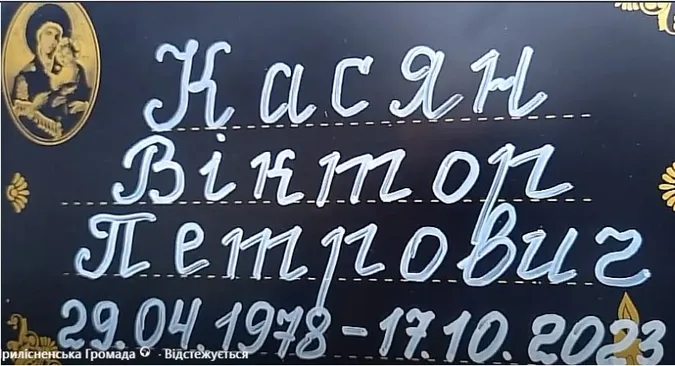 Касян
Віктор
Петрович
29.04.1978 – 17.10.2023
рилісненська Громада · Відстежується